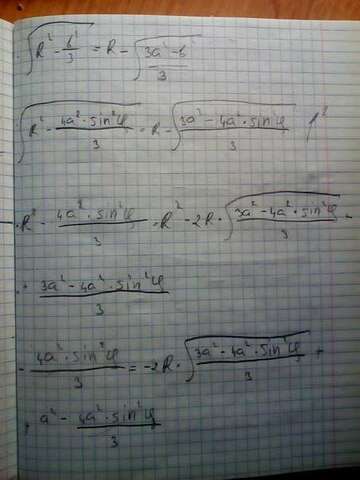 √(R² - b²/3) = R - √((3a² - b)/3)
√(R² - (4a²·sin²φ)/3) = R - √((3a² - 4a²·sin²φ)/3)
R² - (4a²·sin²φ)/3 = R² - 2R·√((3a² - 4a²·sin²φ)/3) -
+ (3a² - 4a²·sin²φ)/3
- (4a²·sin²φ)/3 = -2R·√((3a² - 4a²·sin²φ)/3) +
+ a² - (4a²·sin²φ)/3